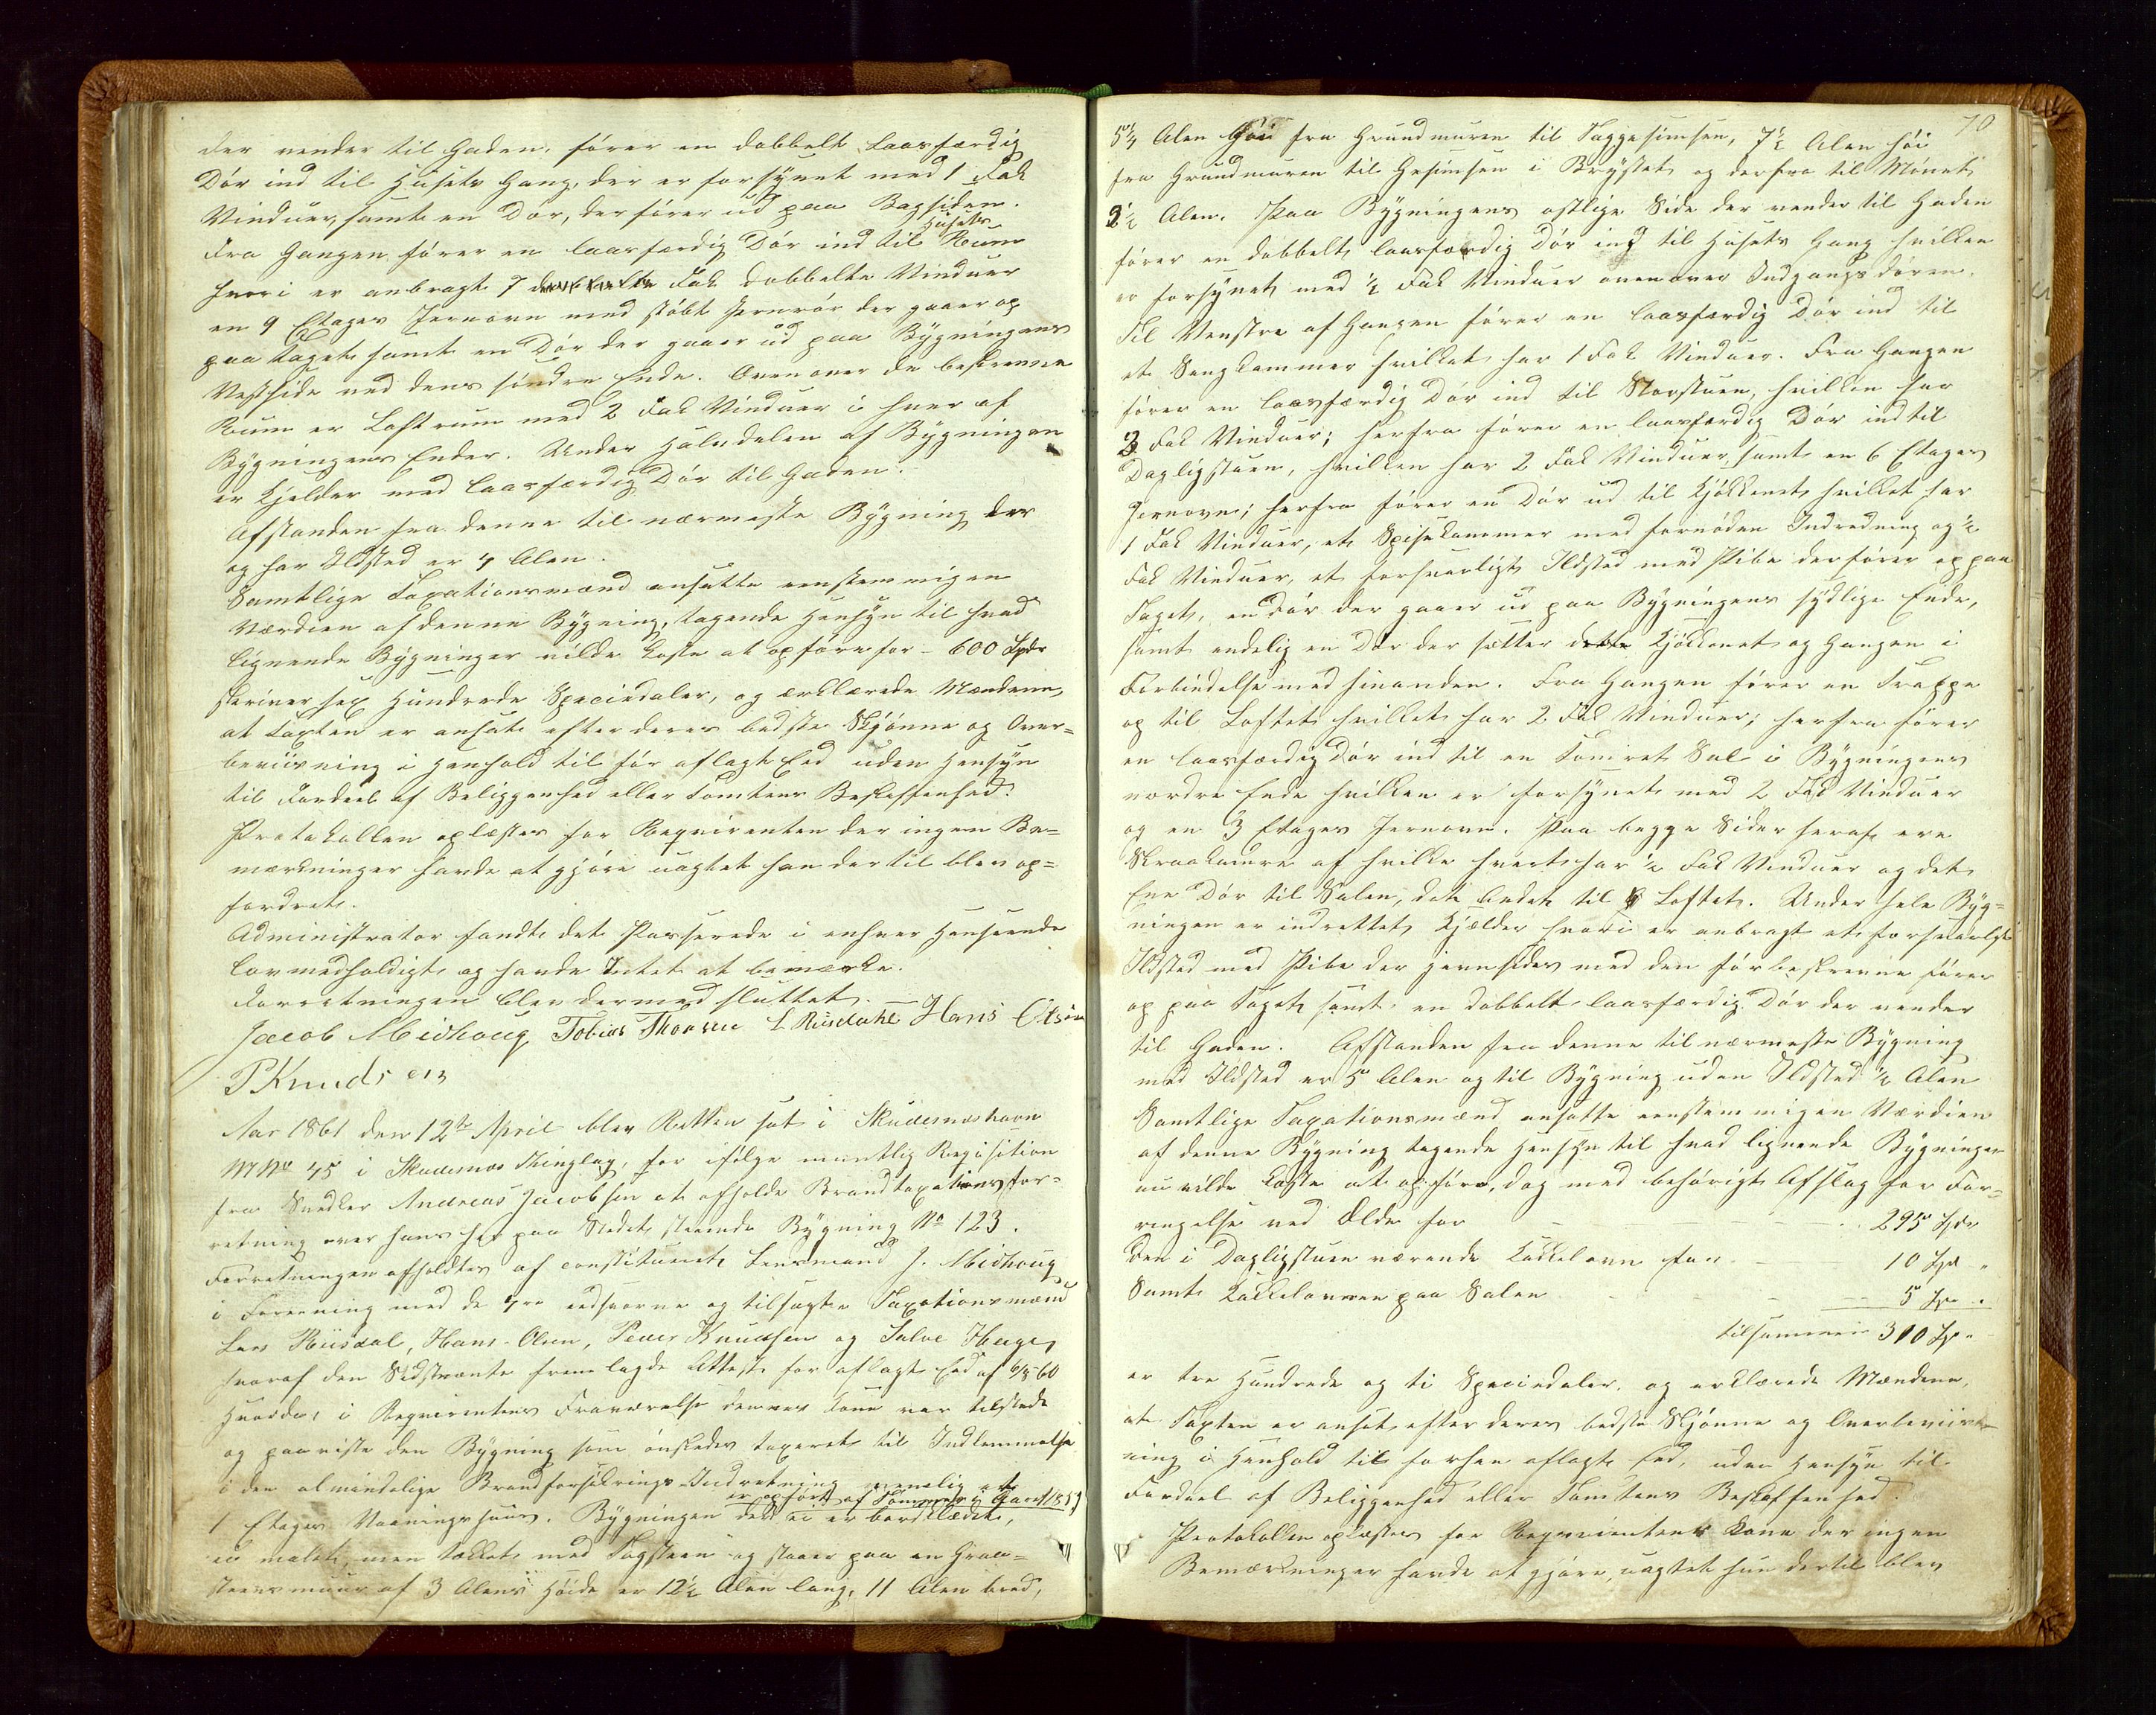 der vender til Gaden, fører en dobbelt laasfærdig
Dør ind til Husets Gang, der er forsynet med 1 Fak
Vinduer, samt en Dør, der fører ud paa Bagsiden.
Husets
Fra Gangen fører en laasfærdig Dør ind til Rum
hvori er anbragt 7 dobbelte Fak dobbelte Vinduer
en 9 Etages Jernovn med støbt Jernrør der gaaer op
paa Taget samt en Dør der gaaer ud paa Bygningens
Vestside ved dens søndre Ende. Ovenover de beskrevne
Rum er Loftrum med 2 Fak Vinduer i hver af
Bygningens Ender. Under Halvdelen af Bygningen
er Kjelder med laasfærdig Dør til Gaden.
Afstanden fra denne til nærmeste Bygning der
og har Ildsted er 4 Alen.
Samtlige Taxationsmænd ansatte eenstemmigen
Værdien af denne Bygning, tagende Hensyn til hvad
lignende Bygninger vilde koste at opføre for - 600 Spdr
skriver sex Hundrede Speciedaler, og erklærede Mændene,
at Taxten er ansat efter deres bedste Skjønne og Over=
beviisning i Henhold til før aflagt Eed uden Hensyn
til Fordeel af Beliggenhed eller Tomtens Beskaffenhed.
Protokollen oplæstes for Reqvirenten der ingen Be=
mærkninger havde at gjøre uagtet han dertil blev op=
fordret.
Administrator fandt det Passerede i enhver Henseende
lovmedholdigt og havde Intet at bemærke.
Forretningen blev dermed sluttet.
Jacob Midhoug Tobias Thorsen L Riisdahl Hans Olsen
P Knudsen
Aar 1861 den 12te April blev Retten sat i Skudesnæshavn
M No 45 i Skudesnæs Thinglag, for ifølge mundtlig Reqvisition
fra Snedker Andreas Jacobsen at afholde Brandtaxationsfor=
retning over hans her paa Stedet staaende Bygning No 123.
Forretningen afholdtes af constitueret Lensmand J. Midhoug
i Forening med de 4re eedsvorne og tilsagte Taxationsmænd
Lars Riisdal, Hans Olsen, Peder Knudsen og Salve Hauge,
hvoraf den Sidstnævnte fremlagde Attest for aflagt Eed af 6/8 60
Hvorda, i Reqvirentens Fraværelse dennes Kone var tilstede
og paaviste den Bygning som ønskedes taxeret til Indlemmelse
i den almindelige Brandforsikrings-Indretning nemlig et
er opført af Tømmer i Aaret 1857
1 Etages Vaaningshuus. Bygningen er bordklædt,
ei malet, men tækket med Tagsteen og staaer paa en Graa=
steensmuur af 3 Alens Høide er 12½ Alen lang, 11 Alen bred,
70
5¼ Alen høi fra Grundmuren til Taggesimsen, 7½ Alen høi
fra Grundmuren til Gesimsen i Brystet og derfra til Mønet
3½ Alen. Paa Bygningens østlige Side der vender til Gaden
fører en dobbelt laasfærdig Dør ind til Husets Gang hvilken
er forsynet med ½ Fak Vinduer ovenover Indgangsdøren.
Til Venstre af Gangen fører en laasfærdig Dør ind til
et Sengkammer hvilket har 1 Fak Vinduer. Fra Gangen
fører en laasfærdig Dør ind til Storstuen, hvilken har
3 Fak Vinduer; herfra fører en laasfærdig Dør ind til
Dagligstuen, hvilken har 2 Fak Vinduer, samt en 6 Etages
Jernovn; herfra fører en Dør ud til Kjøkkenet hvilket har
1 Fak Vinduer, et Spisekammer med fornøden Indredning og ½
Fak Vinduer, et forsvarligt Ildsted med Pibe der fører op paa
Taget, en Dør der gaaer ud paa Bygningens sydlige Ende,
samt endelig en Dør der sætter dette Kjøkkenet og Gangen i
Forbindelse med hinanden. Fra Gangen fører en Trappe
op til Loftet hvilket har 2 Fak Vinduer; herfra fører
en laasfærdig Dør ind til en tømret Sal i Bygningens
nordre Ende hvilken er forsynet med 2 Fak Vinduer
og en 3 Etages Jernovn. Paa begge Sider heraf ere
Skraakamre af hvilke hvert har ½ Fak Vinduer og det
Ene Dør til Salen, det Andet til Loftet. Under hele Byg=
ningen er indrettet Kjælder hvori er anbragt et forsvarligt
Ildsted med Pibe der jevnsides med den før beskrevne fører
op paa Taget samt en dobbelt laasfærdig Dør der vender
til Gaden. Afstanden fra denne til nærmeste Bygning
med Ildsted er 5 Alen og til Bygning uden Ildsted ½ Alen
Samtlige Taxationsmænd ansatte eenstemmigen Værdien
af denne Bygning tagende Hensyn til hvad lignende Bygninger
nu vilde koste at opføre, dog med behørigt Afslag for For=
ringelse ved Ælde for 295 Spd
den i Dagligstuen værende Kakkelovn for 10 Spd "
Samt Kakkelovnen paa Salen 5 Sp "
tilsammen 310 Sp "
er tre Hundrede og ti Speciedaler, og erklærede Mændene,
at Taxten er ansat efter deres bedste Skjønne og Overbeviis=
ning i Henhold til forhen aflagt Eed, uden Hensyn til
Fordeel af Beliggenhed eller Tomtens Beskaffenhed.
Protokollen oplæstes for Reqvirentens Kone der ingen
Bemærkninger havde at gjøre, uagtet hun dertil blev